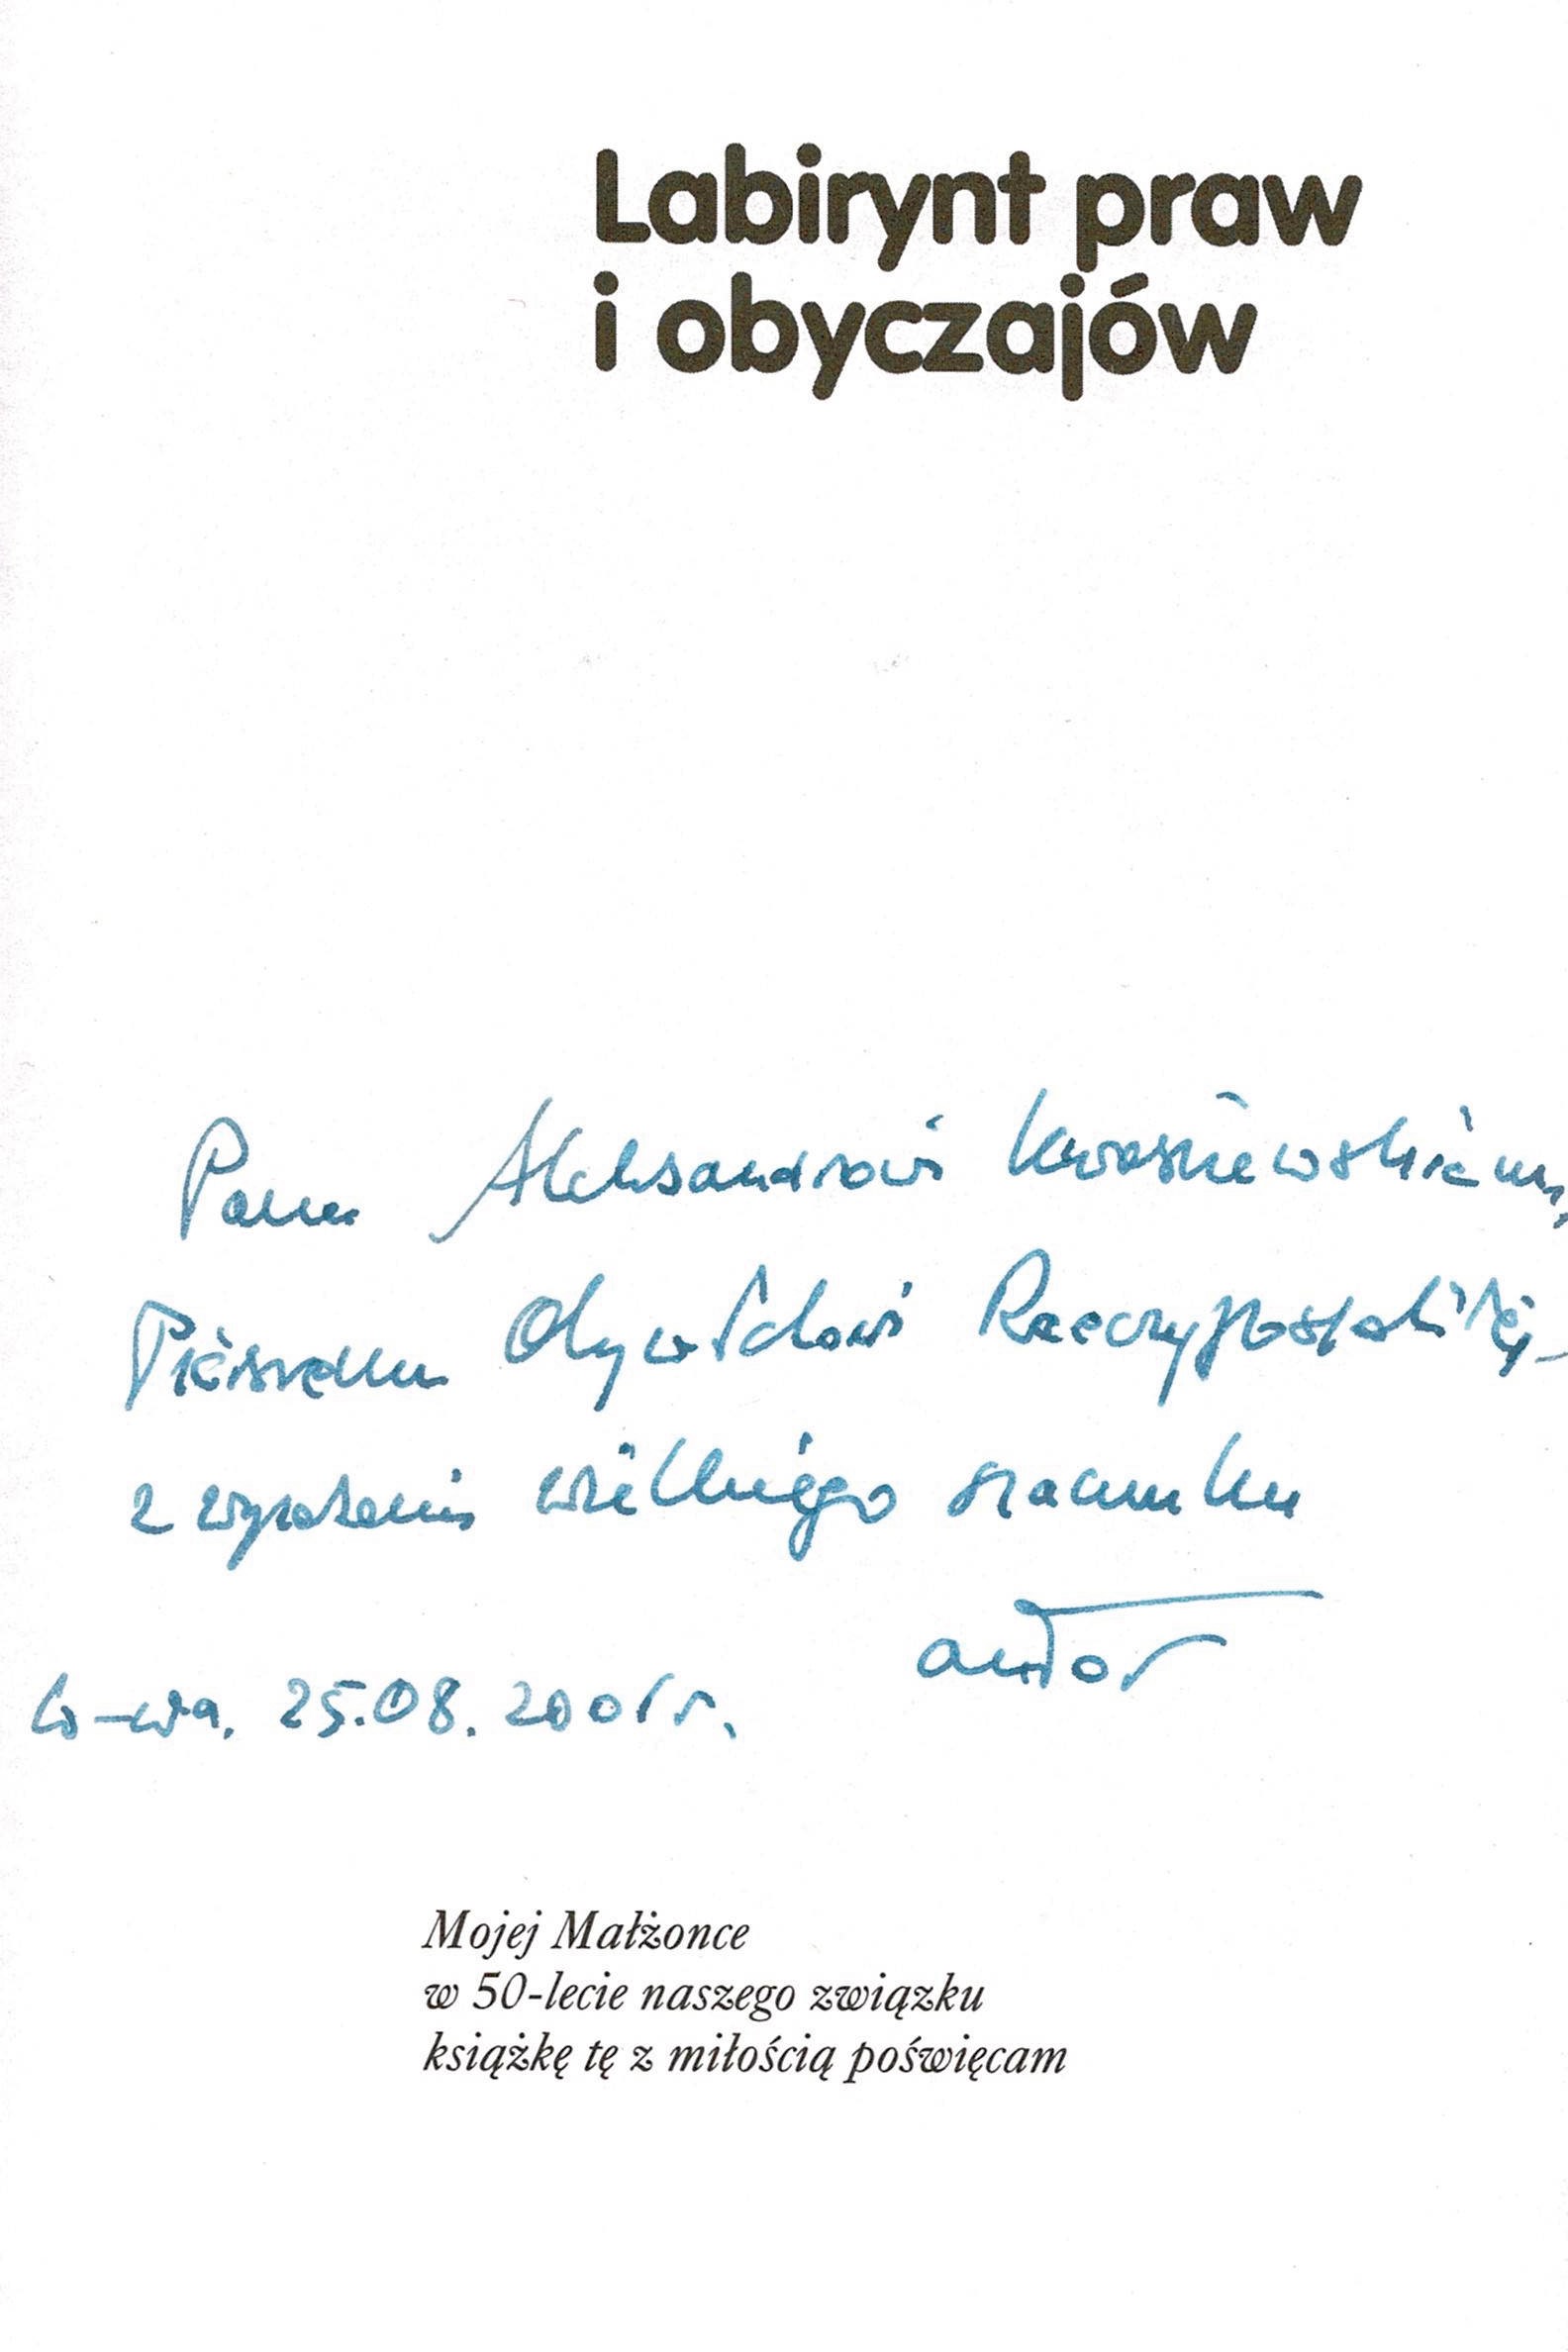 Labirynt praw
i obyczajów
Panu Aleksandrowi Kwaśniewskiemu,
Pierwszemu Obywatelowi Rzeczypospolitej –
z wyrazami wielkiego szacunku
autor
W-wa. 25.08.2001 r.
Mojej Małżonce
w 50-lecie naszego związku
książkę tę z miłością poświęcam